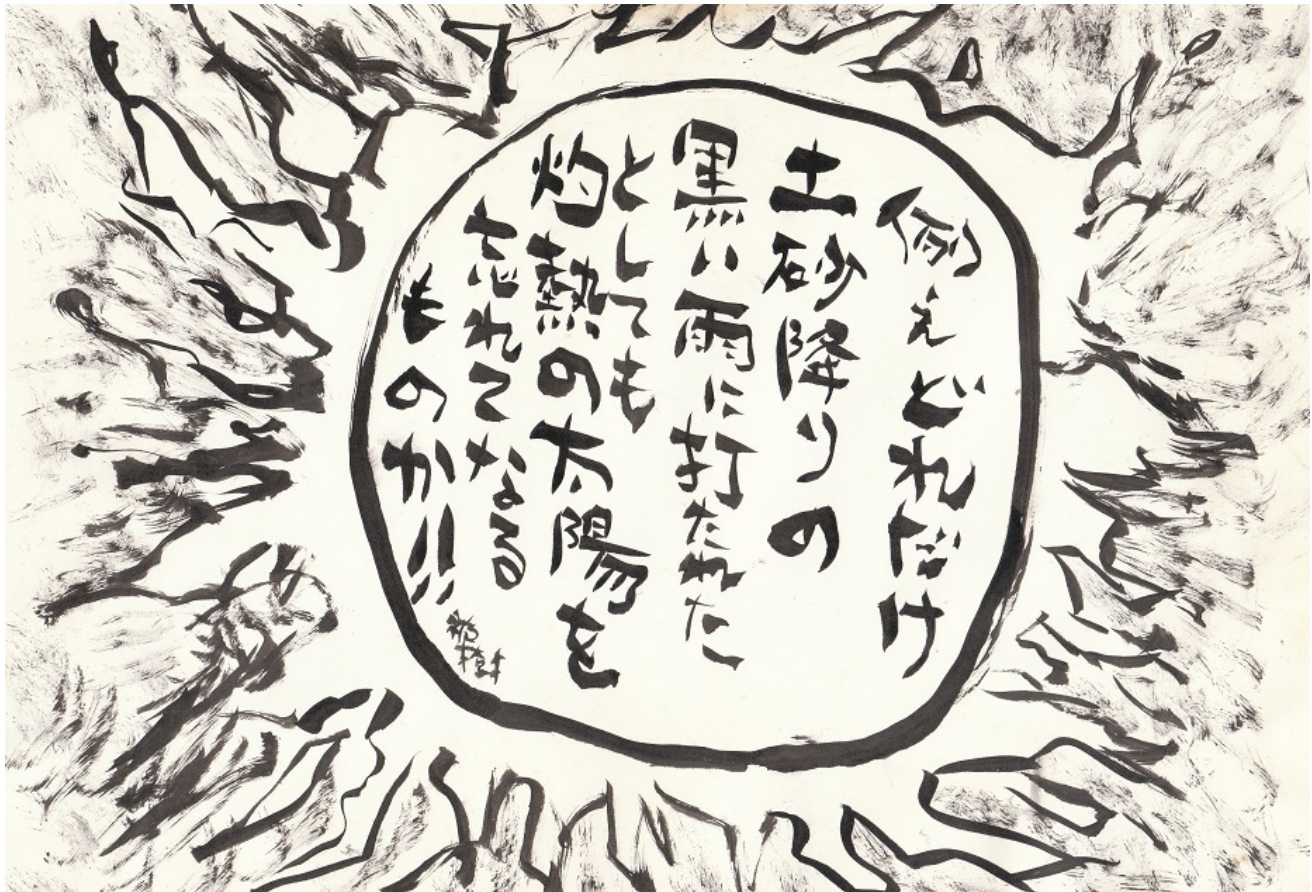 例えどれだけ
土砂降りの
黒い雨に打たれた
としても
灼熱の太陽を
忘れてなる
ものか!!